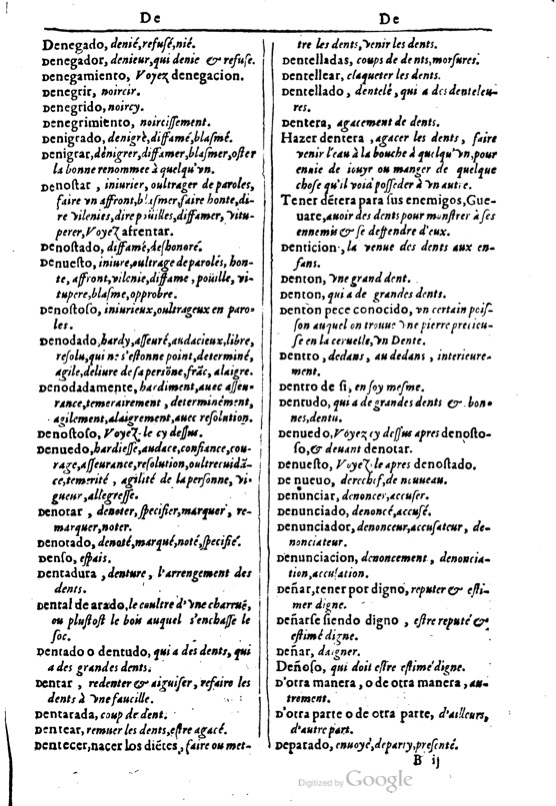 De
Denegado, denié, refusé, nié.
Denegador, denieur, qui denie & refuse.
Denegamiento, Voyez denegacion.
Denegrir, noircir.
Denegrido, noircy.
Denegrimiento, noircissement.
Denigrado, denigrè, diffamé, blasmé.
Denigrar, dénigrer, diffamer, blasmer, oster
la bonne renommee à quelqu'vn.
Denostar, iniurier, oultrager de paroles,
faire vn affront, blasmer, faire honte, di-
re vilenies, dire poüilles, diffamer, vitu-
perer, Voyez afrentar.
Denostado, diffamé, deshonoré.
Denuesto, iniure, oultrage de paroles, hon-
te, affront, vilenie, diffame, poüille, vi-
tupere, blasme, opprobre.
Denostoso, iniurieux, oultrageux en paro-
les.
Denodado, hardy, asseuré, audacieux, libre,
resolu, qui ne s'estonne point, determiné,
agile, deliure de sa persōne, frāc, alaigre.
Denodadamente, hardiment, auec asseu-
rance, temerairement, determinément,
agilement, alaigrement, auec resolution.
Denostoso, Voyez le cy dessus.
Denuedo, hardiesse, audace, confiance, cou-
rage, asseurance, resolution, oultrecuidā-
ce, temerité, agilité de la personne, vi-
gueur, allegresse.
Denotar, denoter, specifier, marquer, re-
marquer, noter.
Denotado, denoté, marqué, noté, specifié.
Denso, espais.
Dentadura, denture, l'arrengement des
dents.
Dental de arado, le coultre d'vne charruë,
ou plustost le bois auquel s'enchasse le
soc.
Dentado o dentudo, qui a des dents, qui
a des grandes dents.
Dentar, redenter & aiguiser, refaire les
dents à vne faucille.
Dentarada, coup de dent.
Dentear, remuer les dents, estre agacé.
Dentecer, nacer los diétes, faire ou met-
De
tre les dents, venir les dents.
Dentelladas, coups de dents, morsures.
Dentellear, claqueter les dents.
Dentellado, dentelé, qui a des denteleu-
res.
Dentera, agacement de dents.
Hazer dentera, agacer les dents, faire
venir l'eau à la bouche à quelqu'vn, pour
enuie de iouyr ou manger de quelque
chose qu'il void posseder à vn autre.
Tener détera para sus enemigos, Gue-
uare, auoir des dents pour monstrer à ses
ennemis & se deffendre d'eux.
Denticion, la venue des dents aux en-
fans.
Denton, vne grand dent.
Denton, qui a de grandes dents.
Denton pece conocido, vn certain pois-
son auquel on trouue vne pierre precieu-
se en la ceruelle, vn Dente.
Dentro, dedans, au dedans, interieure-
ment.
Dentro de si, en soy mesme.
Dentudo, qui a de grandes dents & bon-
nes, dentu.
Denuedo, Voyez cy dessus apres denosto-
so, & deuant denotar.
Denuesto, Voyez le apres denostado.
De nueuo, derechef, de nouueau.
Denunciar, denoncer, accuser.
Denunciado, denoncé, accusé.
Denunciador, denonceur, accusateur, de-
nonciateur.
Denunciacion, denoncement, denoncia-
tion, accusation.
Deñar, tener por digno, reputer & esti-
mer digne.
Deñarse siendo digno, estre reputé &
estimé digne.
Deñar, daigner.
Deñoso, qui doit estre estimé digne.
D'otra manera, o de otra manera, au-
trement.
D'otra parte o de otra parte, d'ailleurs,
d'autre part.
Deparado, enuoyé, departy, presenté.
B ij
Digitized by Google